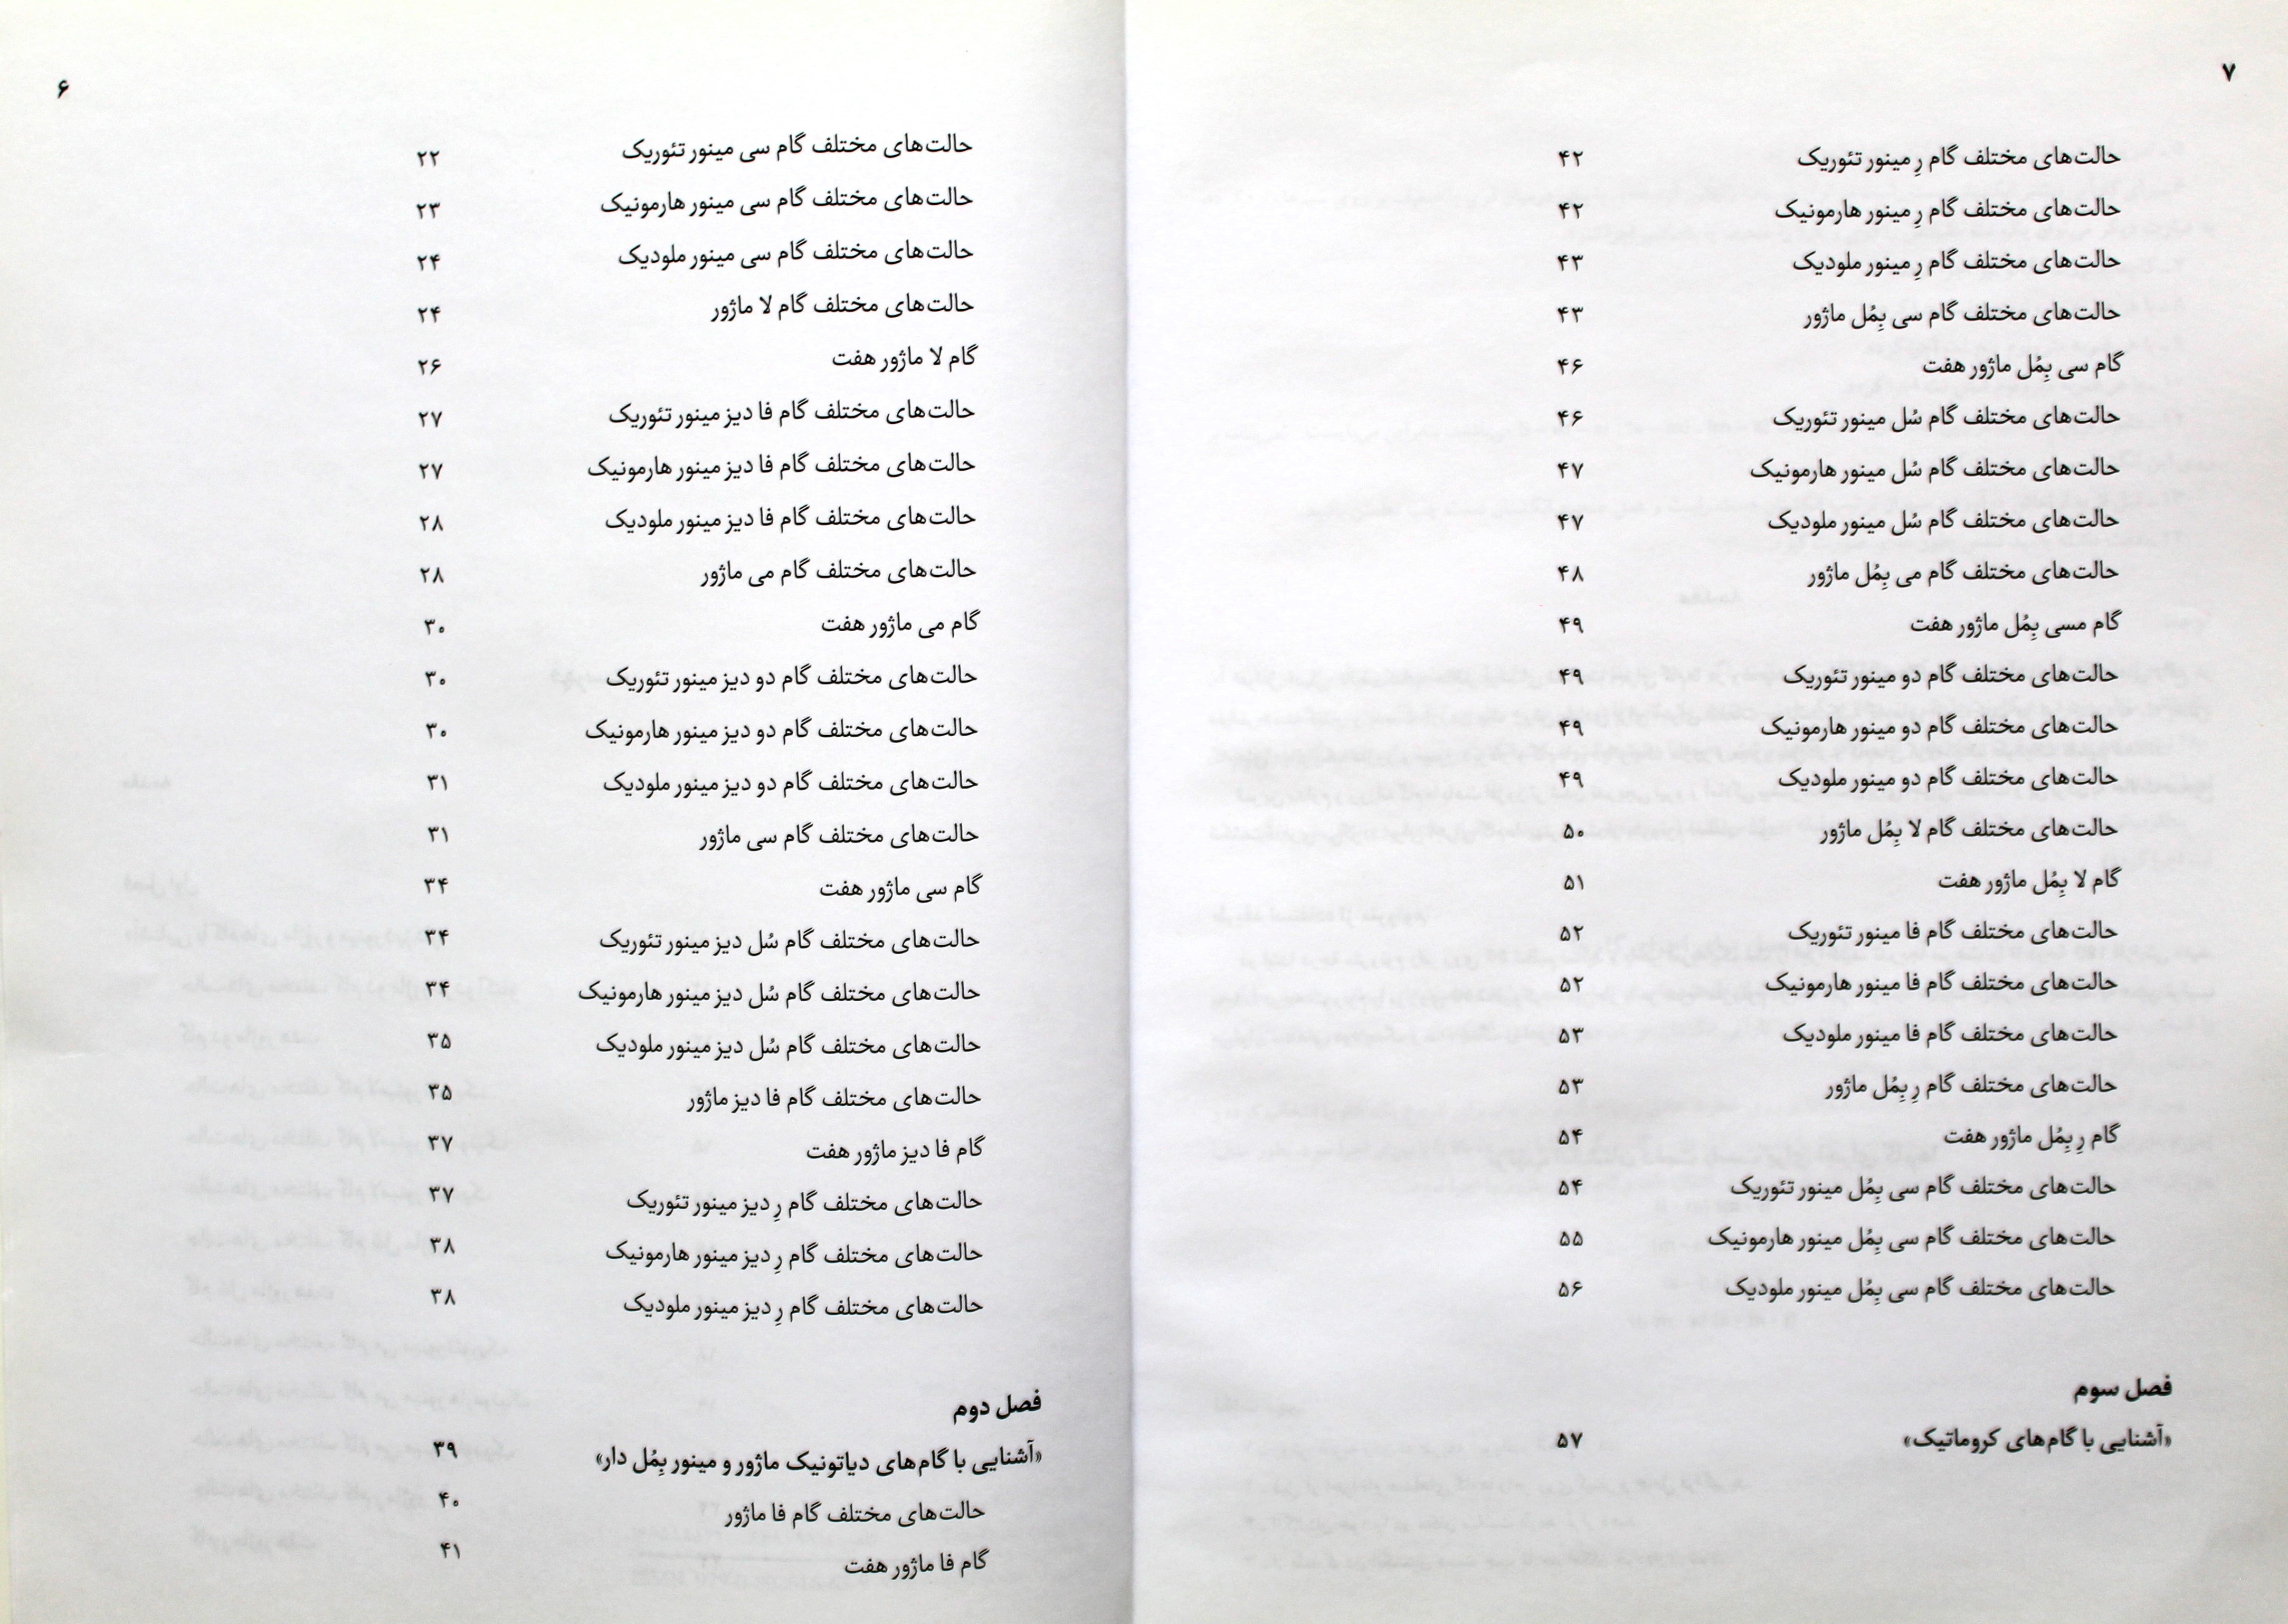 ۶
حالت‌های مختلف گام سی مینور تئوریک ۲۲
حالت‌های مختلف گام سی مینور هارمونیک ۲۳
حالت‌های مختلف گام سی مینور ملودیک ۲۴
حالت‌های مختلف گام لا ماژور ۲۴
گام لا ماژور هفت ۲۶
حالت‌های مختلف گام فا دیز مینور تئوریک ۲۷
حالت‌های مختلف گام فا دیز مینور هارمونیک ۲۷
حالت‌های مختلف گام فا دیز مینور ملودیک ۲۸
حالت‌های مختلف گام می ماژور ۲۸
گام می ماژور هفت ۳۰
حالت‌های مختلف گام دو دیز مینور تئوریک ۳۰
حالت‌های مختلف گام دو دیز مینور هارمونیک ۳۰
حالت‌های مختلف گام دو دیز مینور ملودیک ۳۱
حالت‌های مختلف گام سی ماژور ۳۱
گام سی ماژور هفت ۳۴
حالت‌های مختلف گام سُل دیز مینور تئوریک ۳۴
حالت‌های مختلف گام سُل دیز مینور هارمونیک ۳۴
حالت‌های مختلف گام سُل دیز مینور ملودیک ۳۵
حالت‌های مختلف گام فا دیز ماژور ۳۵
گام فا دیز ماژور هفت ۳۷
حالت‌های مختلف گام رِ دیز مینور تئوریک ۳۷
حالت‌های مختلف گام رِ دیز مینور هارمونیک ۳۸
حالت‌های مختلف گام رِ دیز مینور ملودیک ۳۸
فصل دوم
«آشنایی با گام‌های دیاتونیک ماژور و مینور بِمُل دار» ۳۹
حالت‌های مختلف گام فا ماژور ۴۰
گام فا ماژور هفت ۴۱
۷
حالت‌های مختلف گام رِ مینور تئوریک ۴۲
حالت‌های مختلف گام رِ مینور هارمونیک ۴۲
حالت‌های مختلف گام رِ مینور ملودیک ۴۳
حالت‌های مختلف گام سی بِمُل ماژور ۴۳
گام سی بِمُل ماژور هفت ۴۶
حالت‌های مختلف گام سُل مینور تئوریک ۴۶
حالت‌های مختلف گام سُل مینور هارمونیک ۴۷
حالت‌های مختلف گام سُل مینور ملودیک ۴۷
حالت‌های مختلف گام می بِمُل ماژور ۴۸
گام مسی بِمُل ماژور هفت ۴۹
حالت‌های مختلف گام دو مینور تئوریک ۴۹
حالت‌های مختلف گام دو مینور هارمونیک ۴۹
حالت‌های مختلف گام دو مینور ملودیک ۴۹
حالت‌های مختلف گام لا بِمُل ماژور ۵۰
گام لا بِمُل ماژور هفت ۵۱
حالت‌های مختلف گام فا مینور تئوریک ۵۲
حالت‌های مختلف گام فا مینور هارمونیک ۵۲
حالت‌های مختلف گام فا مینور ملودیک ۵۳
حالت‌های مختلف گام رِ بِمُل ماژور ۵۳
گام رِ بِمُل ماژور هفت ۵۴
حالت‌های مختلف گام سی بِمُل مینور تئوریک ۵۴
حالت‌های مختلف گام سی بِمُل مینور هارمونیک ۵۵
حالت‌های مختلف گام سی بِمُل مینور ملودیک ۵۶
فصل سوم
«آشنایی با گام‌های کروماتیک» ۵۷